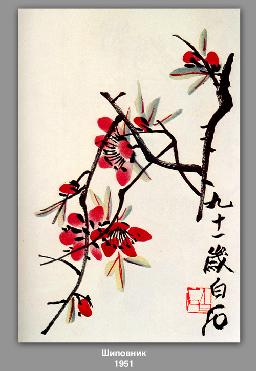 九十一歲白石
Шиповник
1951